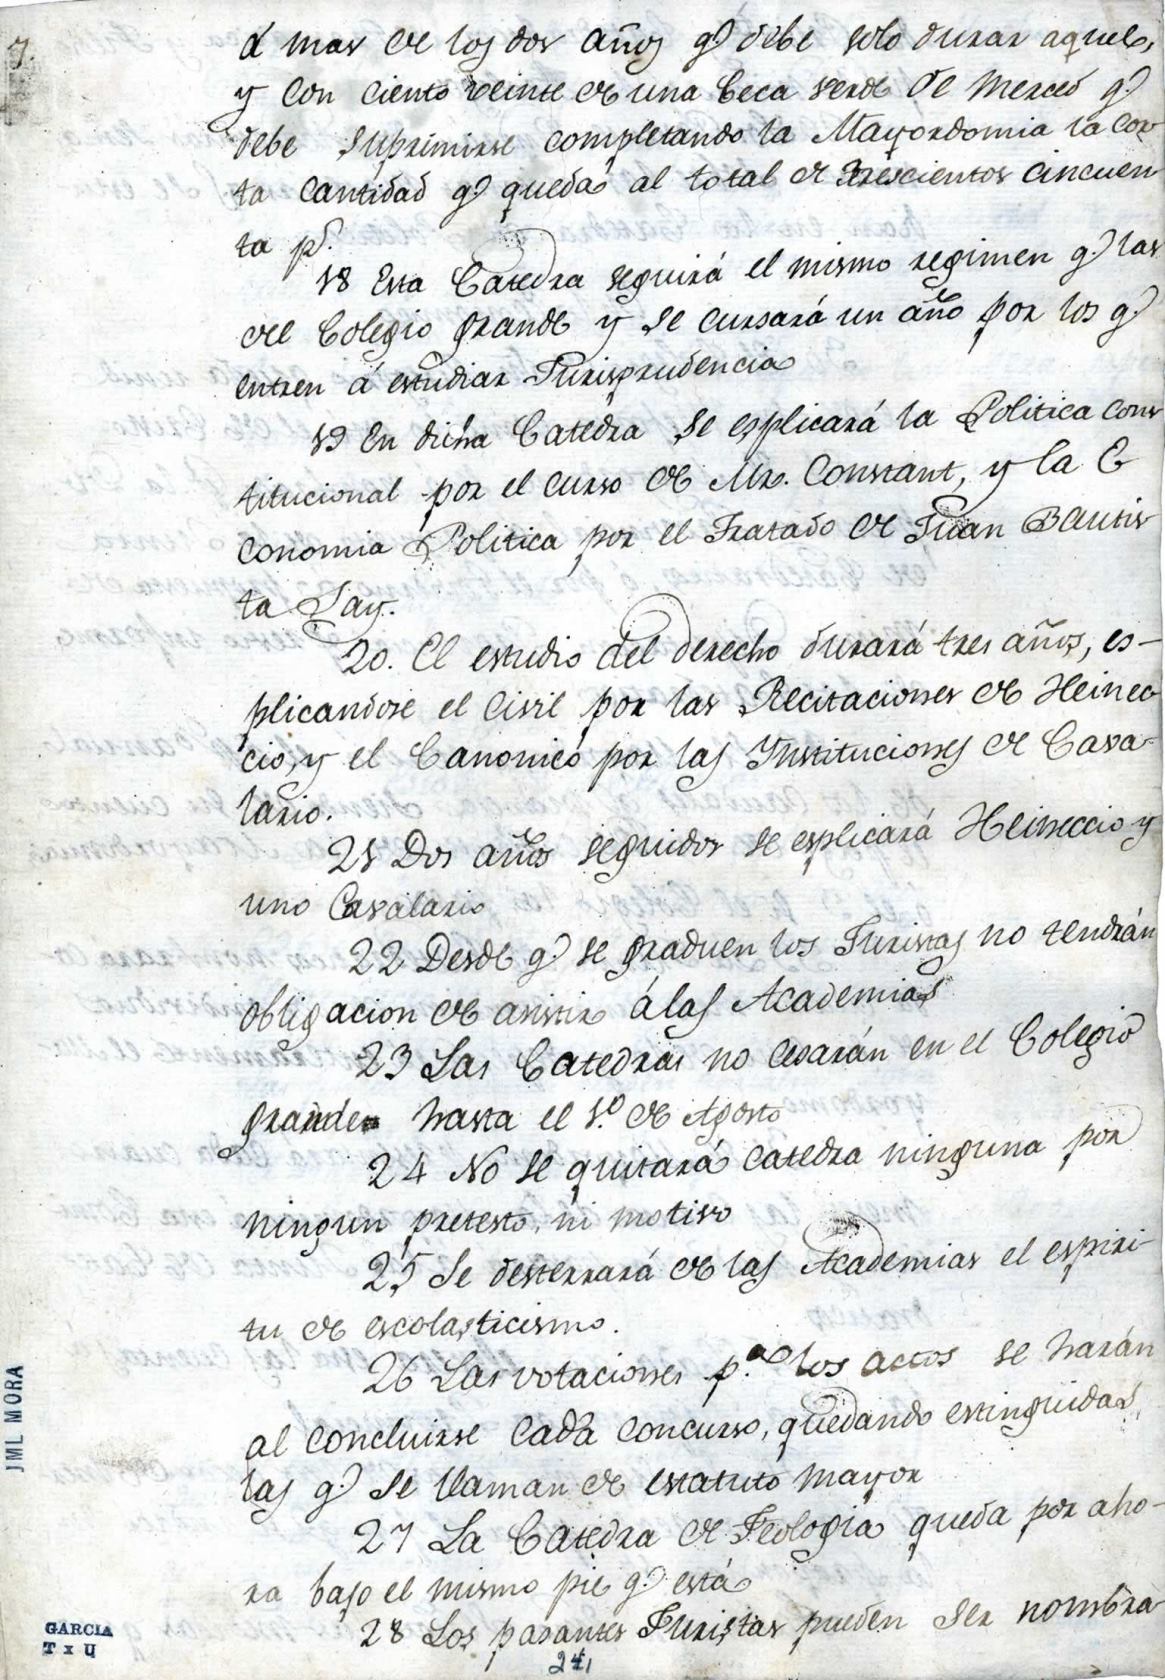 7.
á mas de los dos años q.e debe solo durar aquel,
y con ciento veinte de una beca verde de Merced q.e
debe suprimirse completando la Mayordomia la cor
ta cantidad q.e queda al total de trescientos cincuen
ta p.s
18 Esta Catedra seguirá el mismo regimen q.e las
del Colegio grande y se cursará un año por los q.e
entren á estudiar Jurisprudencia
19 En dicha Catedra se esplicará la Politica cons
titucional por el curso de Mr. Constant, y la E
conomia Politica por el Tratado de Juan Bautis
ta Say.
20. El estudio del derecho durará tres años, es-
plicandose el Civil por las Recitaciones de Heinec
cio, y el Canonico por las Instituciones de Cava-
lario.
21 Dos años seguidos se esplicará Heineccio y
uno Cavalario
22 Desde q.e se graduen los Juristas no tendrán
obligacion de asistir á las Academias
23 Las Catedras no cesarán en el Colegio
grande hasta el 1.o de Agosto
24 No se quitará catedra ninguna por
ningun pretesto, ni motivo
25 Se desterrará de las Academias el espiri-
tu de escolasticismo.
26 Las votaciones p.a los actos se harán
al concluirse cada concurso, quedando estinguidas
las q.e se llaman de estatuto mayor
27 La Catedra de Teologia queda por aho-
ra bajo el mismo pie q.e está
28 Los pasantes Juristas pueden ser nombra
JML MORA
GARCIA
T x U
241